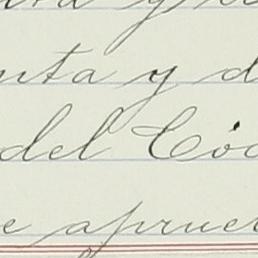 nta y d
del Cód
e aprue